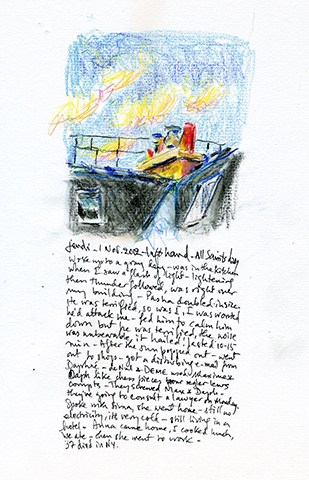 jeudi - 1 Nov. 2012 - left hand - All Saints day
Woke up to a gray day - was in the kitchen
when I saw a flash of light - lightening
then thunder followed, was right over
my building - Pasha doubled in size
He was terrified, so was I, I was worried
he'd attack me - fed him to calm him
down but he was terrified, the noise
was unbearable, it hailed, lasted 10-15
min - After the sun popped out - went
out to shops - got a disturbing e-mail from
Daphne - & DEME
Daph like chess pieces
They screwed Max & Daph -
they're going to consult a lawyer on Monday.
Spoke with Irma, she went home - still no
electricity, its very cold - still living in a
hotel - Anna came home, I cooked lunch,
we ate - then she went to work -
37 died in NY.